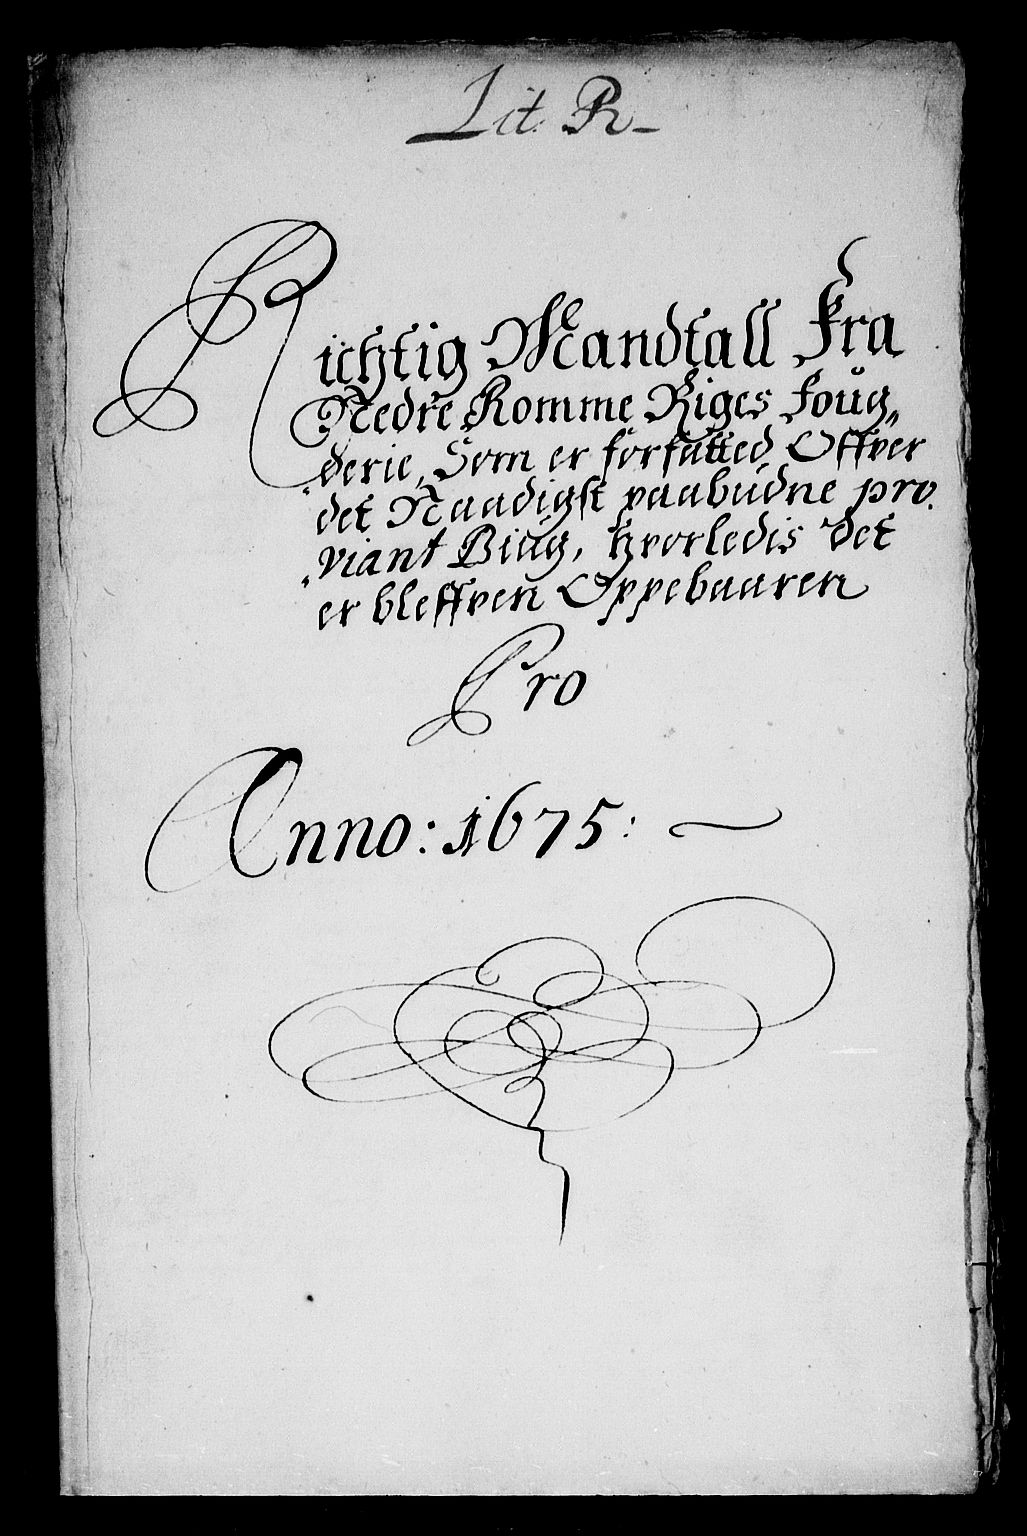 Lit. R
Richtig Mandtall Fra
Nedre Romme Riges Foug„
„derie, Som er forfatted Offver
det Naadigst paabudne pro„
„viant Biug, hvorledis det
er bleffven Oppebaaren
Pro
Anno: 1675: